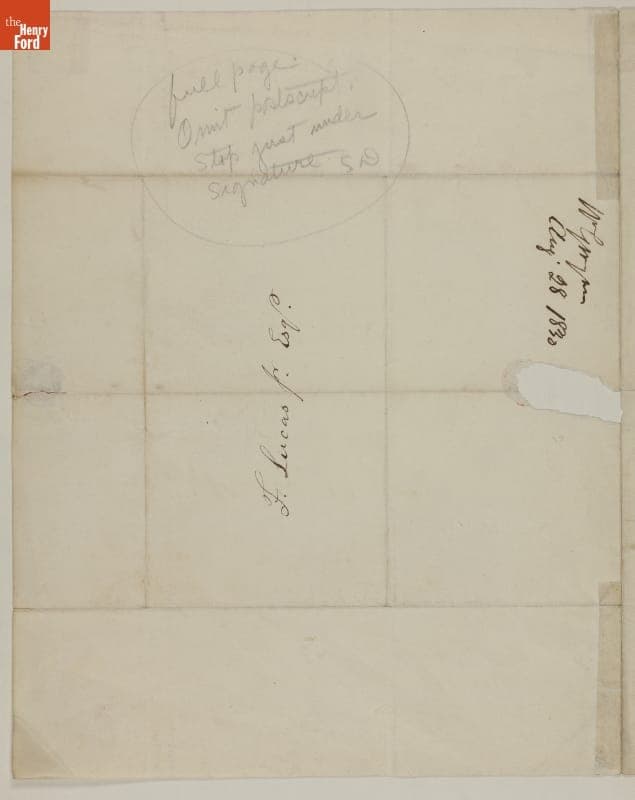 the
Henry
Ford
full page.
Omit postscript,
Stop just under
signature SD
Aug. 28 1830
F. Lucas jr. Esqr.